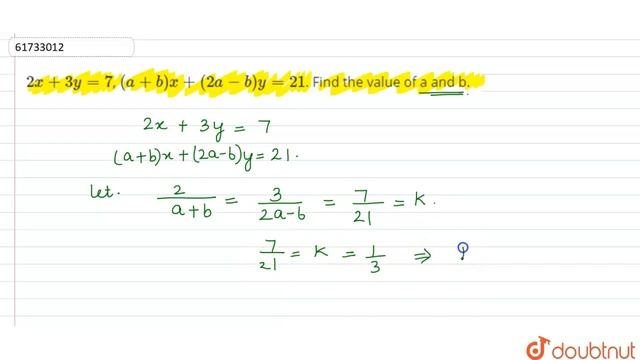 61733012
2x + 3y = 7, (a + b)x + (2a − b)y = 21. Find the value of a and b.
2x + 3y = 7
(a+b)x+(2a-b)y=21.
let. 2/(a+b) = 3/(2a-b) = 7/21 = K.
7/21 = K = 1/3 ⇒
doubtnut